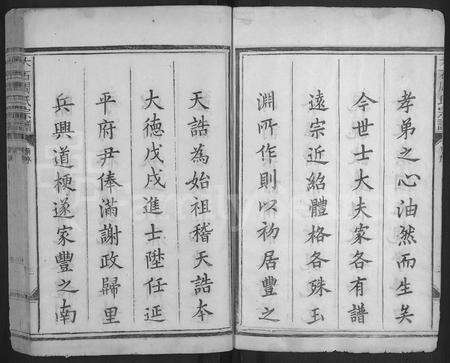 孝弟之心油然而生矣
今世士大夫家各有譜
遠宗近紹體格各殊玉
淵所作則以祔居豐之
天誥為始祖稽天誥本
大德戊戌進士陞任延
平府尹俸滿謝政歸里
兵興道梗遂家豐之南